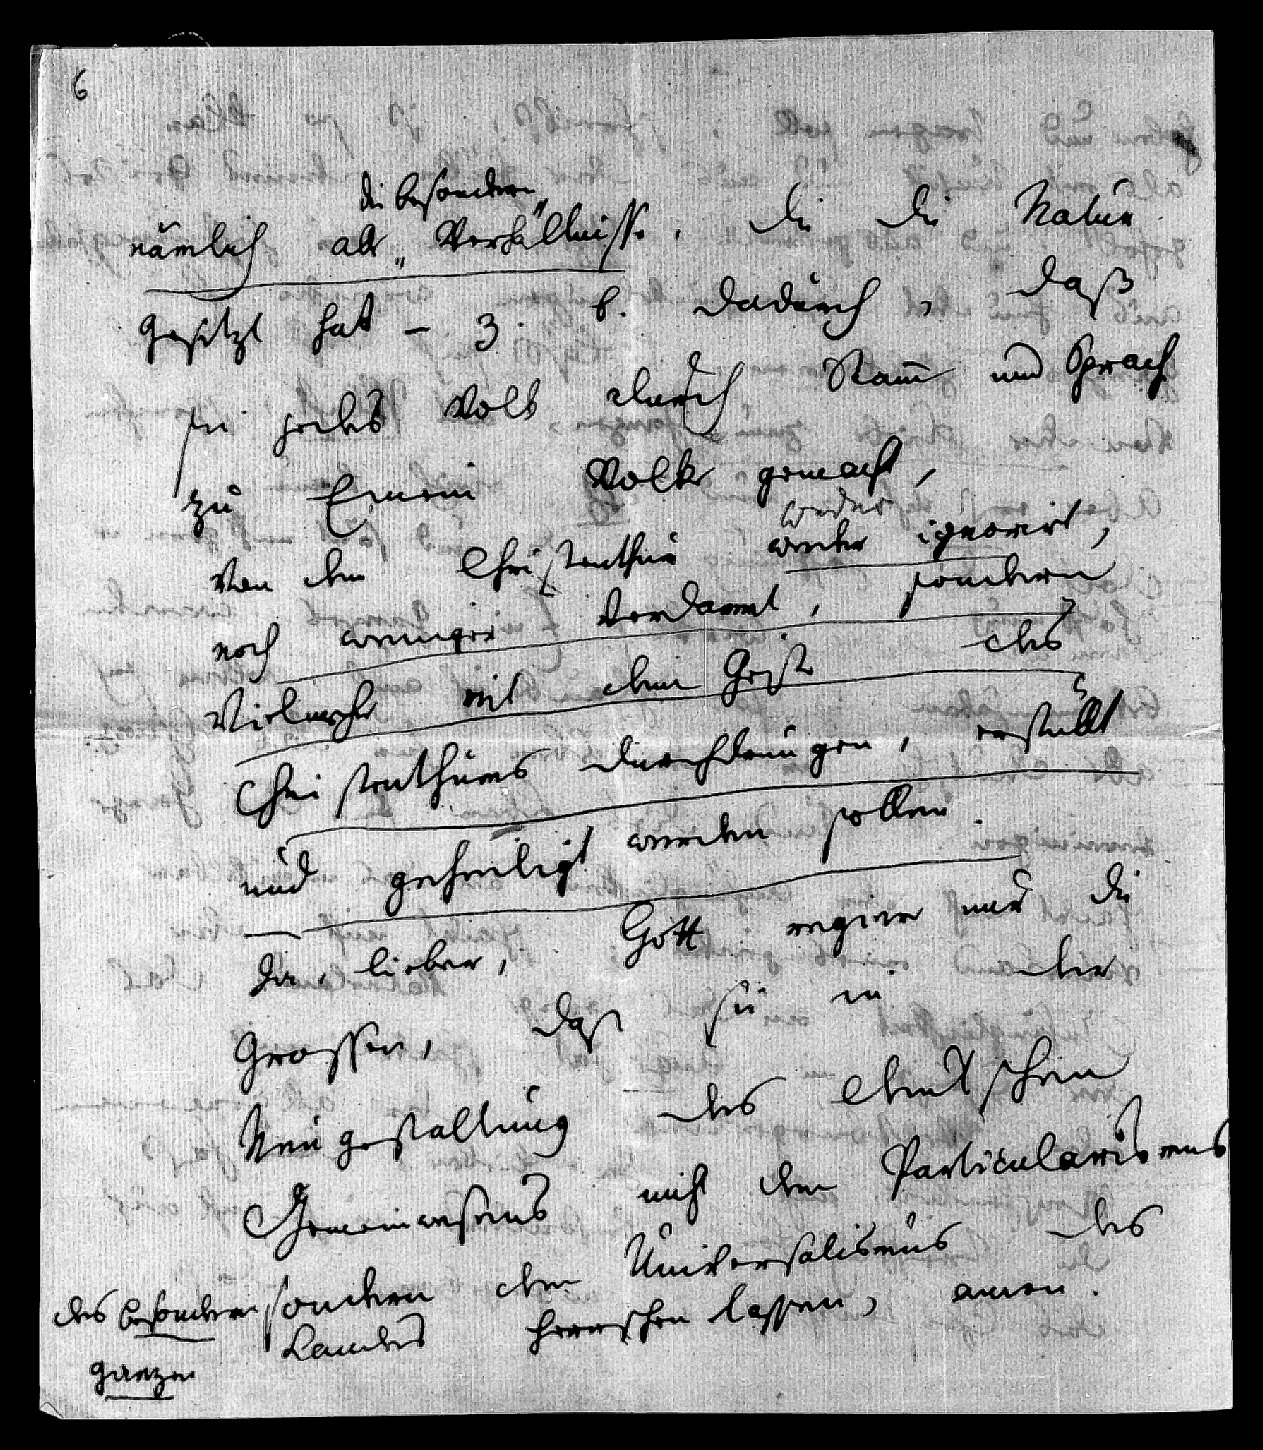 6
die besondern
nämlich alle Verhältnisse, die die Natur
gesetzt hat – z. B. dadurch, daß
sie jedes Volk durch Stam̄ und Sprach
zu Einem Volke gemacht,
von dem Christenthum weder ignorirt,
weder
noch weniger verdammt, sondern
vielmehr mit dem Geist des
Christenthums durchdrungen, erfüllt
und geheiligt werden sollen.
Ja, lieber, Gott regiere nur die
Grossen, daß sie in der
Neugestaltung des deutschen
Gemeinwesens nicht den Particularismus
des besondern sondern den Universalismus des
Landes herrschen lassen, amen.
ganzen